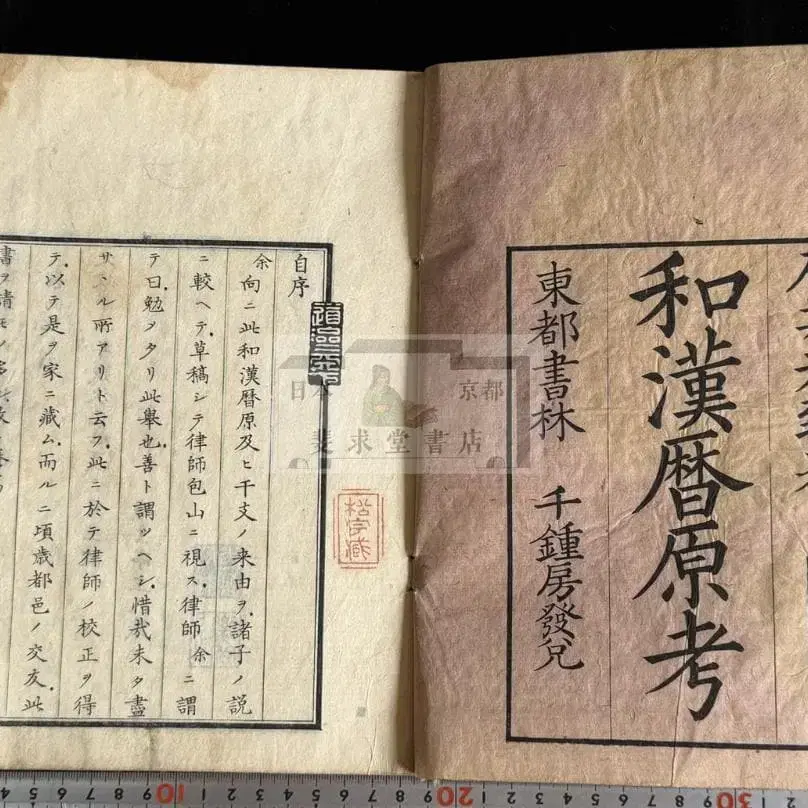 和漢暦原考
東都書林 千鍾房發兌
自序
余向ニ此和漢暦原及ヒ干支ノ来由ヲ諸子ノ説
ニ較ヘテ草稿シテ律師包山ニ視ス律師余ニ謂
テ曰勉メタリ此舉也善ト謂ツヘシ惜哉未タ盡
サヽル所アリト云フ此ニ於テ律師ノ校正ヲ得
テ以テ是ヲ家ニ藏ム而ルニ頃歳都邑ノ交友此
書ヲ請モノ多
日本 京都
斐求堂書店
10
20
30